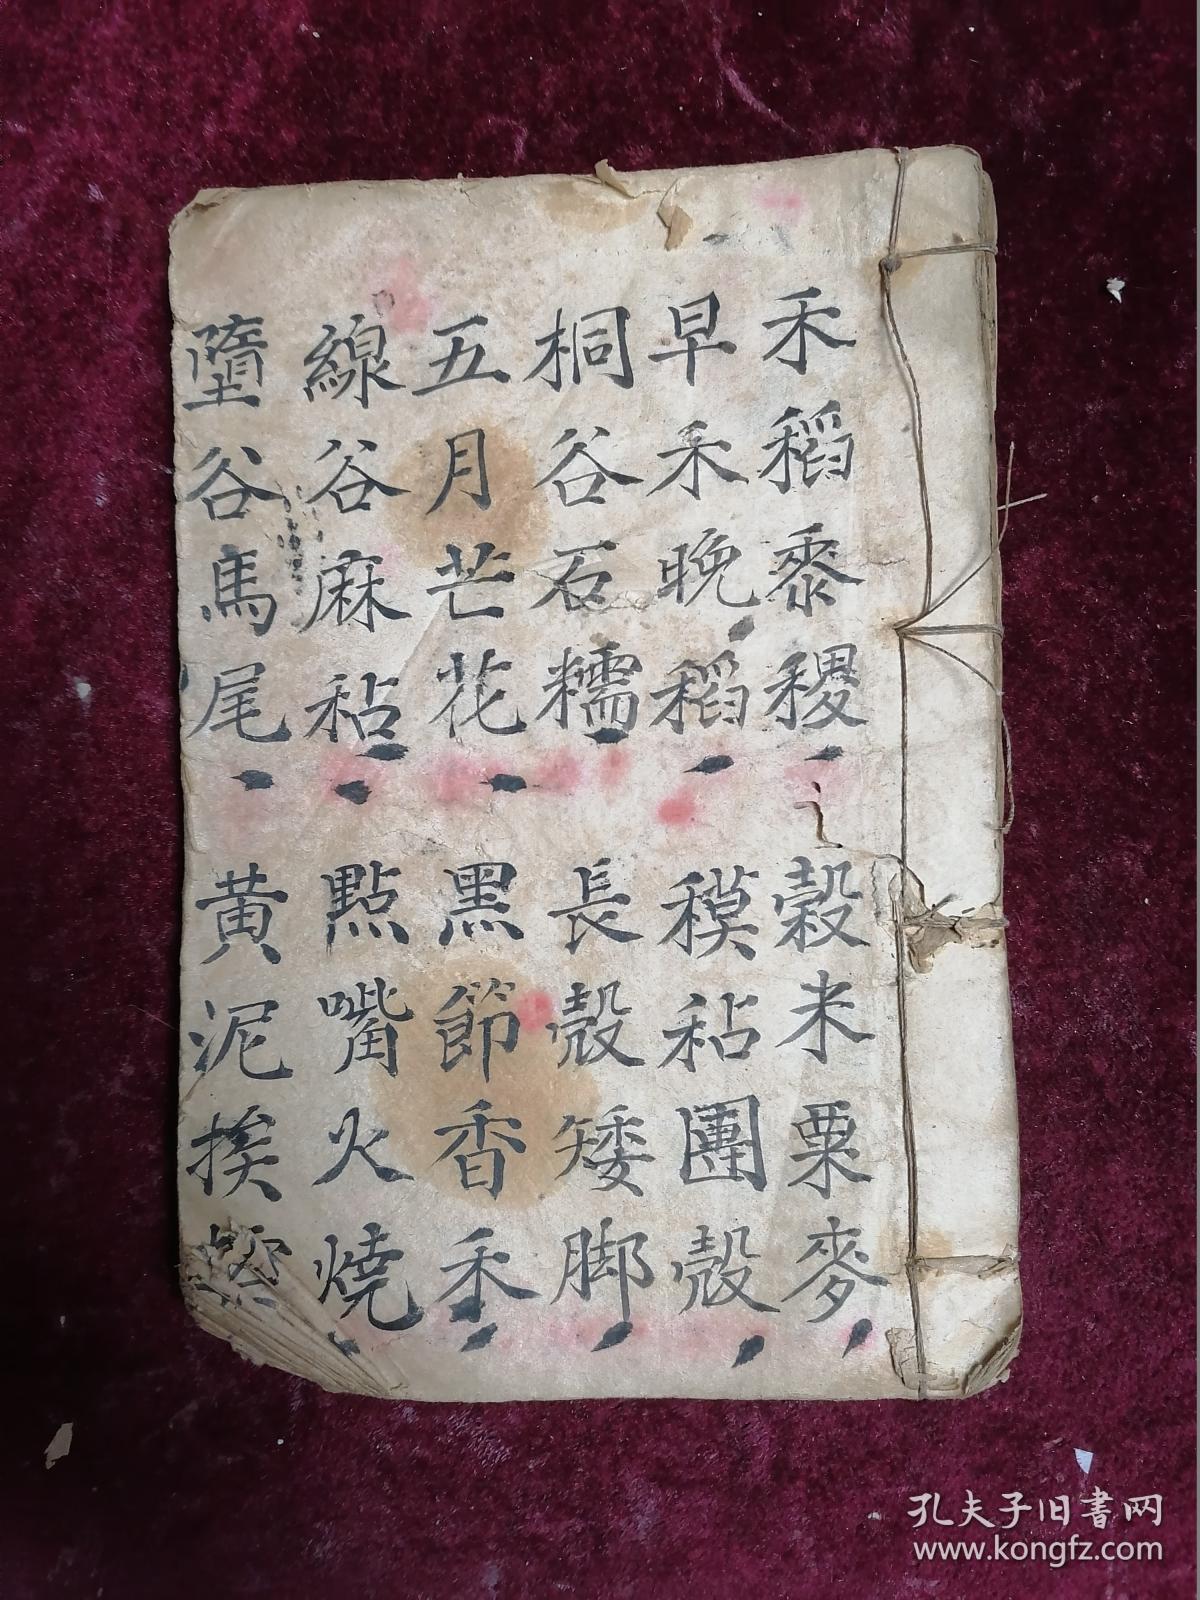 禾稻黍稷 穀米粟麥
早禾晚稻 秥團殼
桐谷石糯 長殼矮脚
五月芒花 黑節香禾
線谷麻秥 點嘴火燒
墮谷馬尾 黄泥挨
孔夫子旧书网
www.kongfz.com